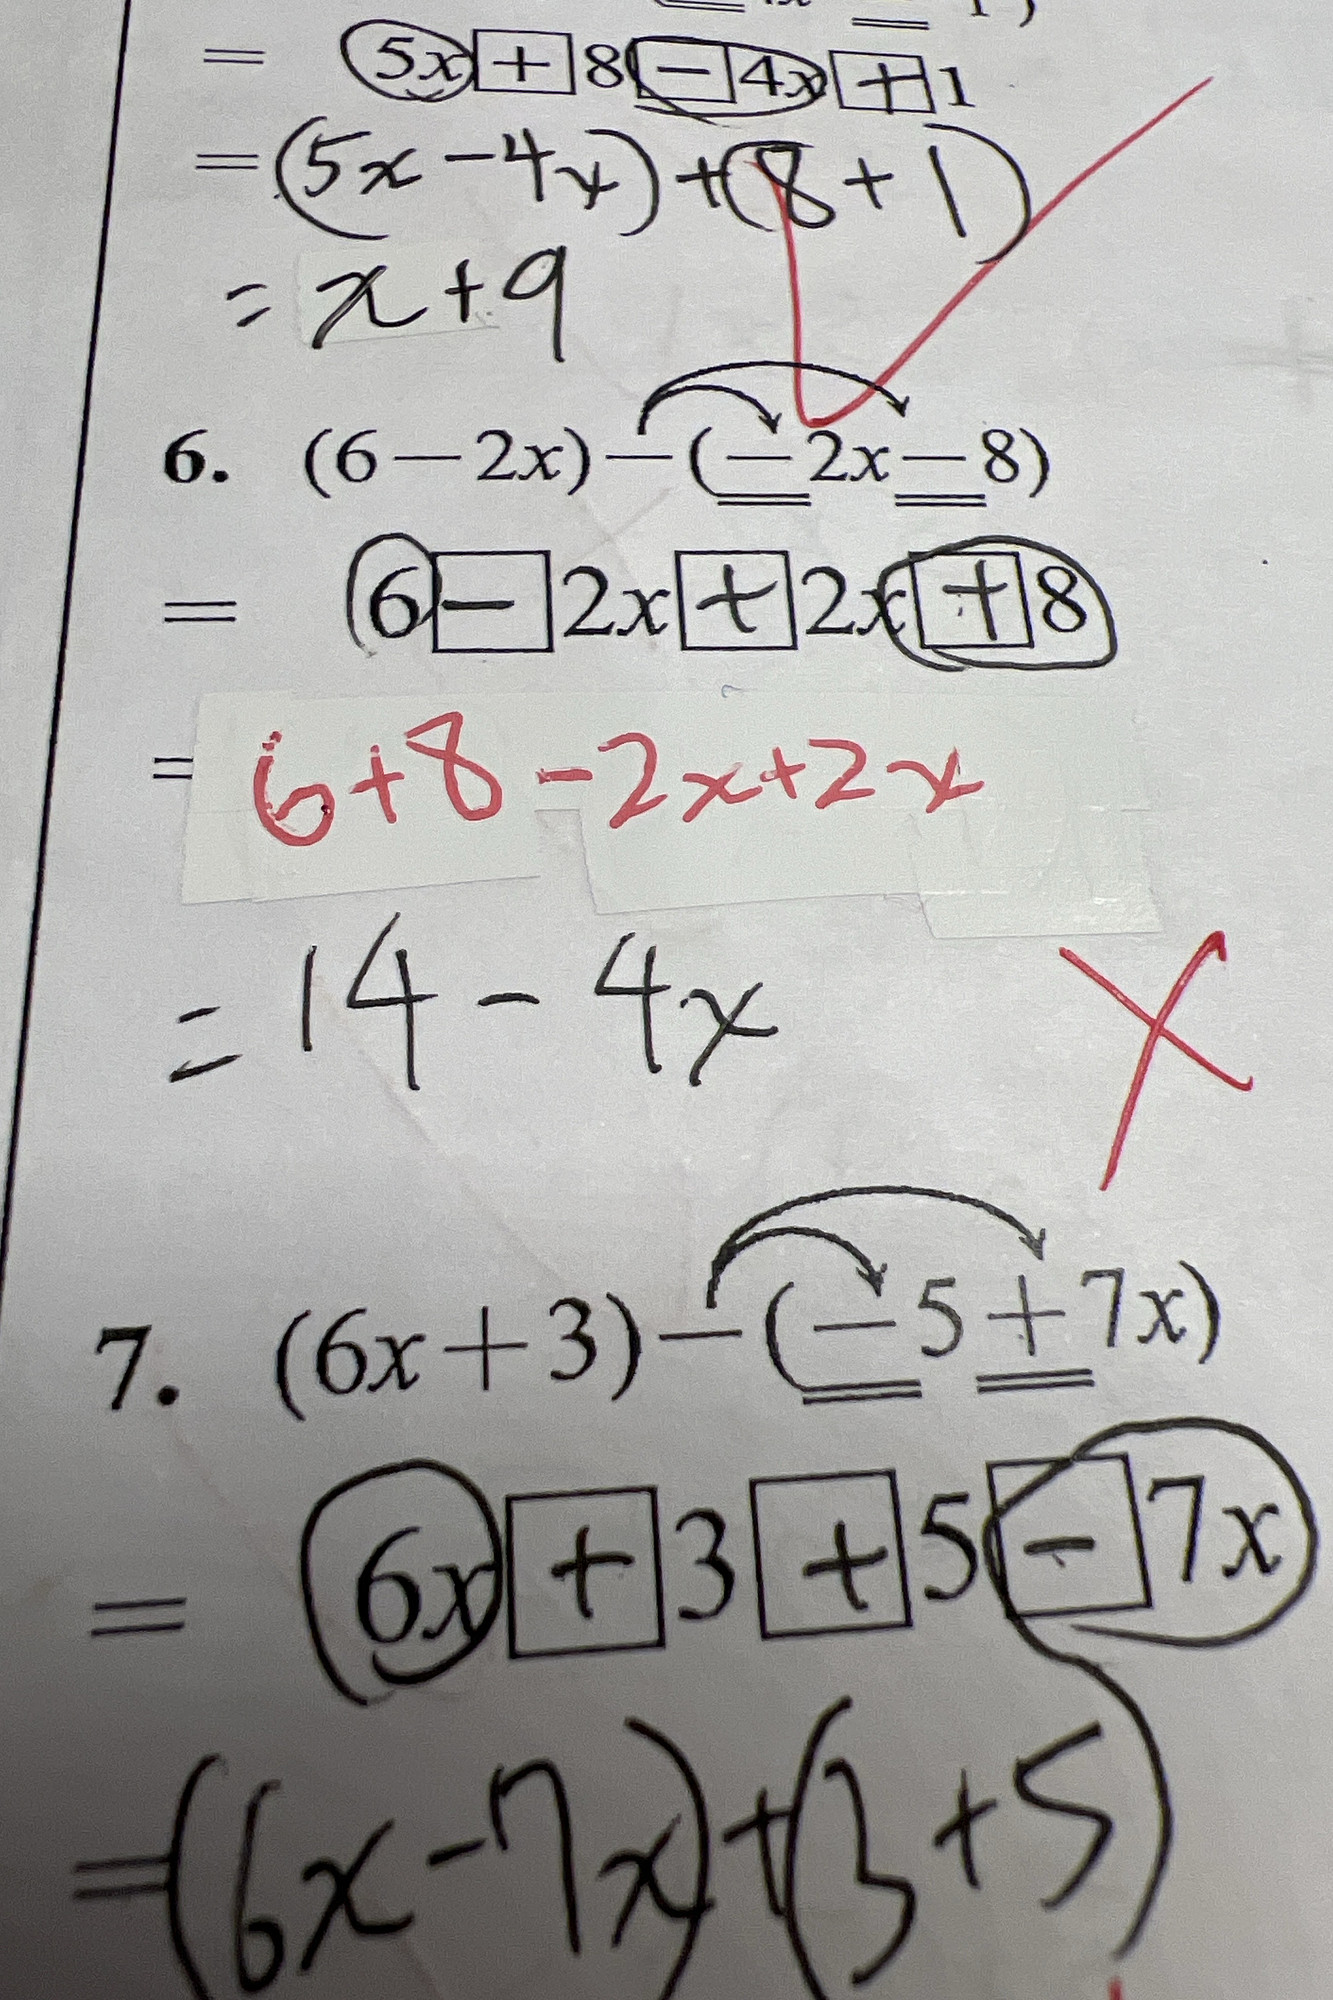 = 5x + 8 - 4x + 1
= (5x - 4x) + (8 + 1)
= x + 9
6. (6 - 2x) - (- 2x - 8)
= 6 - 2x + 2x + 8
= 6 + 8 - 2x + 2x
= 14 - 4x
7. (6x + 3) - (- 5 + 7x)
= 6x + 3 + 5 - 7x
= (6x - 7x) + (3 + 5)